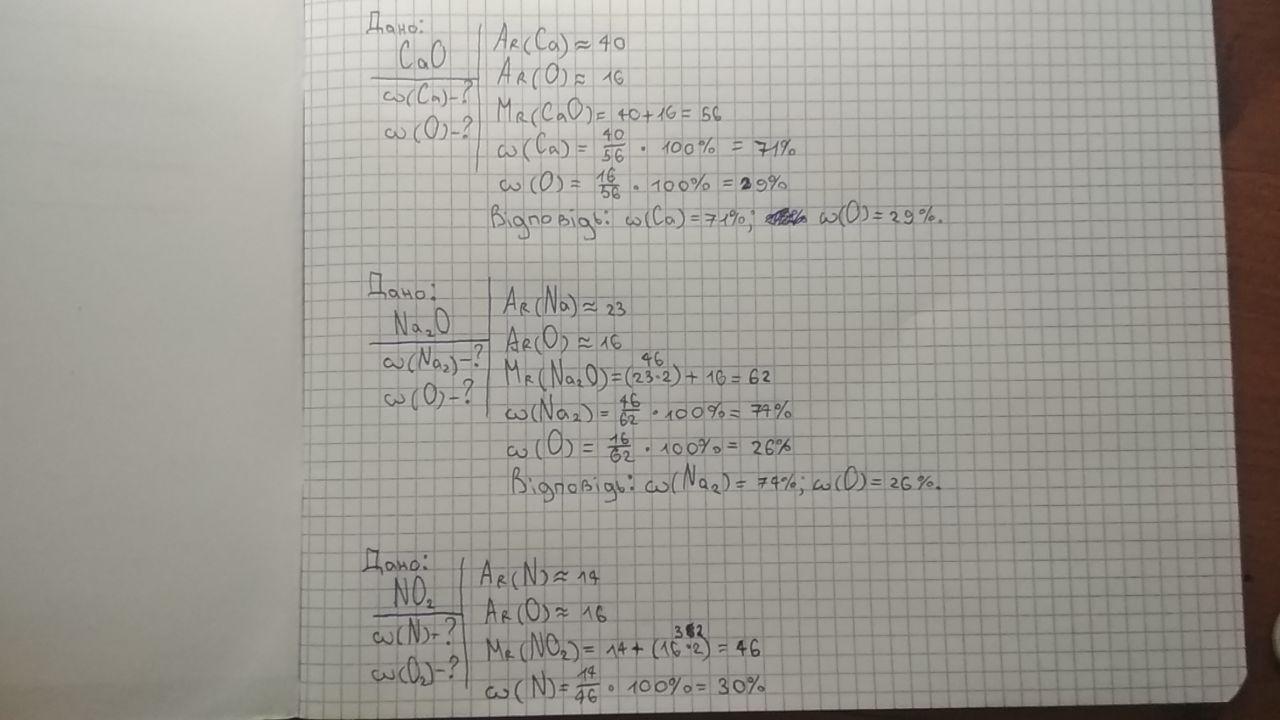 Дано:
CaO
ω(Ca)-?
ω(O)-?
Ar(Ca) ≈ 40
Ar(O) ≈ 16
Mr(CaO) = 40+16 = 56
ω(Ca) = 40/56 · 100% = 71%
ω(O) = 16/56 · 100% = 29%
Відповідь: ω(Ca) = 71%; ω(O) = 29%.
Дано:
Na₂O
ω(Na₂)-?
ω(O)-?
Ar(Na) ≈ 23
Ar(O) ≈ 16
46
Mr(Na₂O) = (23·2) + 16 = 62
ω(Na₂) = 46/62 · 100% = 74%
ω(O) = 16/62 · 100% = 26%
Відповідь: ω(Na₂) = 74%; ω(O) = 26%.
Дано:
NO₂
ω(N)-?
ω(O₂)-?
Ar(N) ≈ 14
Ar(O) ≈ 16
32
Mr(NO₂) = 14 + (16·2) = 46
ω(N) = 14/46 · 100% = 30%